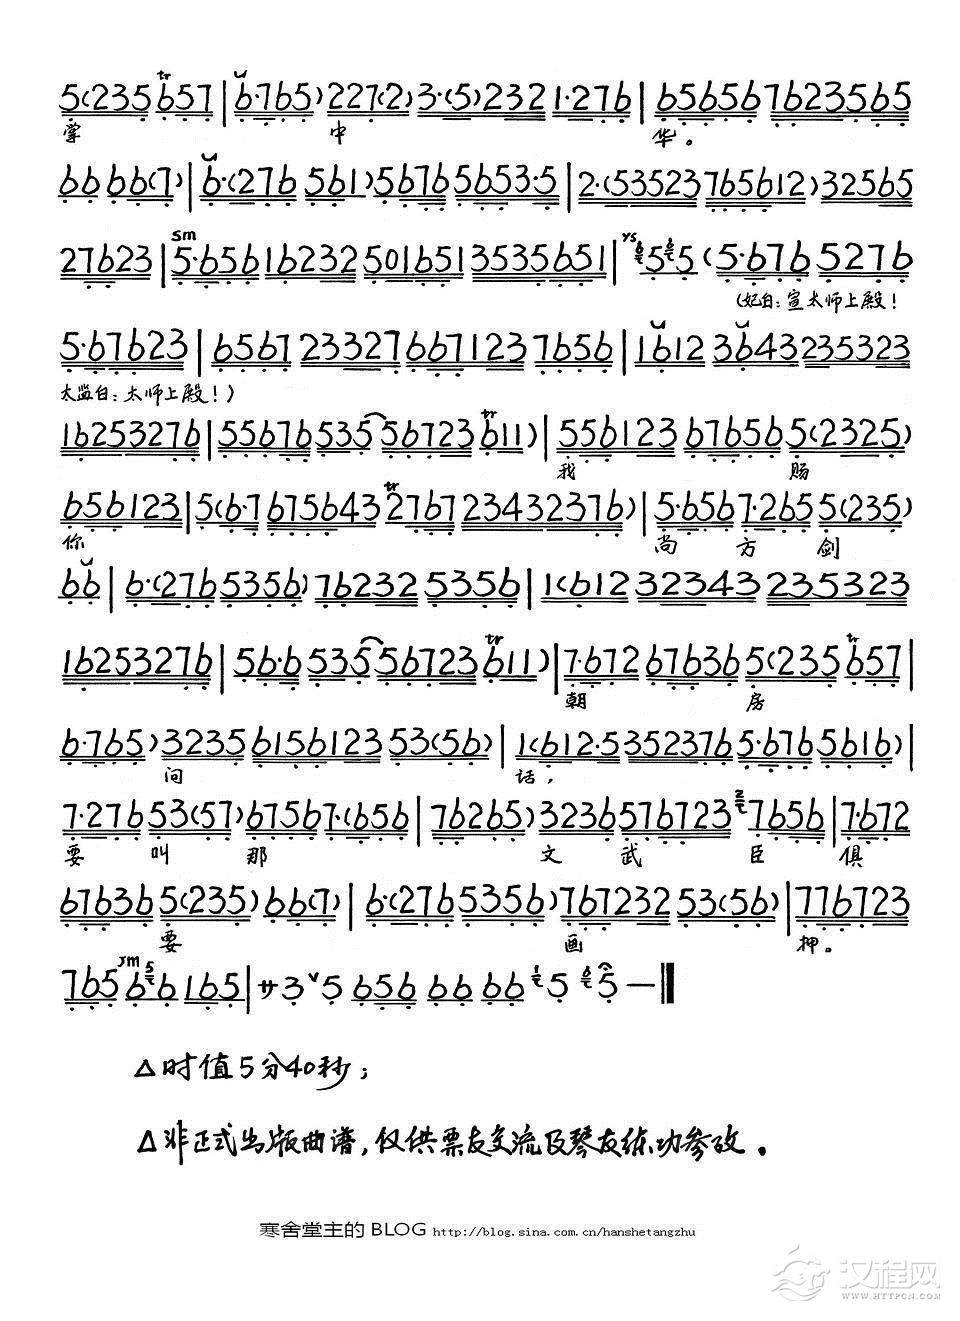 5(235 657 | 6·765) 227(2) 3·(5)232 1·276 | 656567623565
掌 中 华。
66 66(7) | 6·(276 561) 5676 5653·5 | 2·(53523765612) 32565
27623 | 5·656 16232 501651 3535651 | 5 5 (5·676 5276
(妃白：宣太师上殿！
5·67623 | 6567 23327 667123 7656 | 1612 3643 235323
太监白：太师上殿！)
16253276 | 55676 535 56723 611) | 556123 67656 5(2325)
我 赐
656123 | 5(6·7 675643 2767 234323276) | 5·656 7·265 5(235)
你 尚 方 剑
66 | 6·(276 5356) 76232 5356 | 1(612 32343 235323
16253276 | 56·6 535 56723 611) | 7·672 67636 5(235 657 |
朝 房
6·765) 3235 6156123 53(56) | 1(612·53523765·676 5616) |
问 话，
7·276 53(57) 67567·(656 | 76265) 3236 576723 7656 | 7·672
要 叫 那 文 武 臣 俱
67636 5(235) 66(7) | 6·(276 5356) 767232 53(56) | 776723
要 画 押。
765 6 6 165 | サ3 5 656 66 66 5 5 —
△时值5分40秒；
△非正式出版曲谱，仅供票友交流及琴友练功参改。
寒舍堂主的 BLOG http://blog.sina.com.cn/hanshetangzhu
汉程网
WWW.HTTPCN.COM